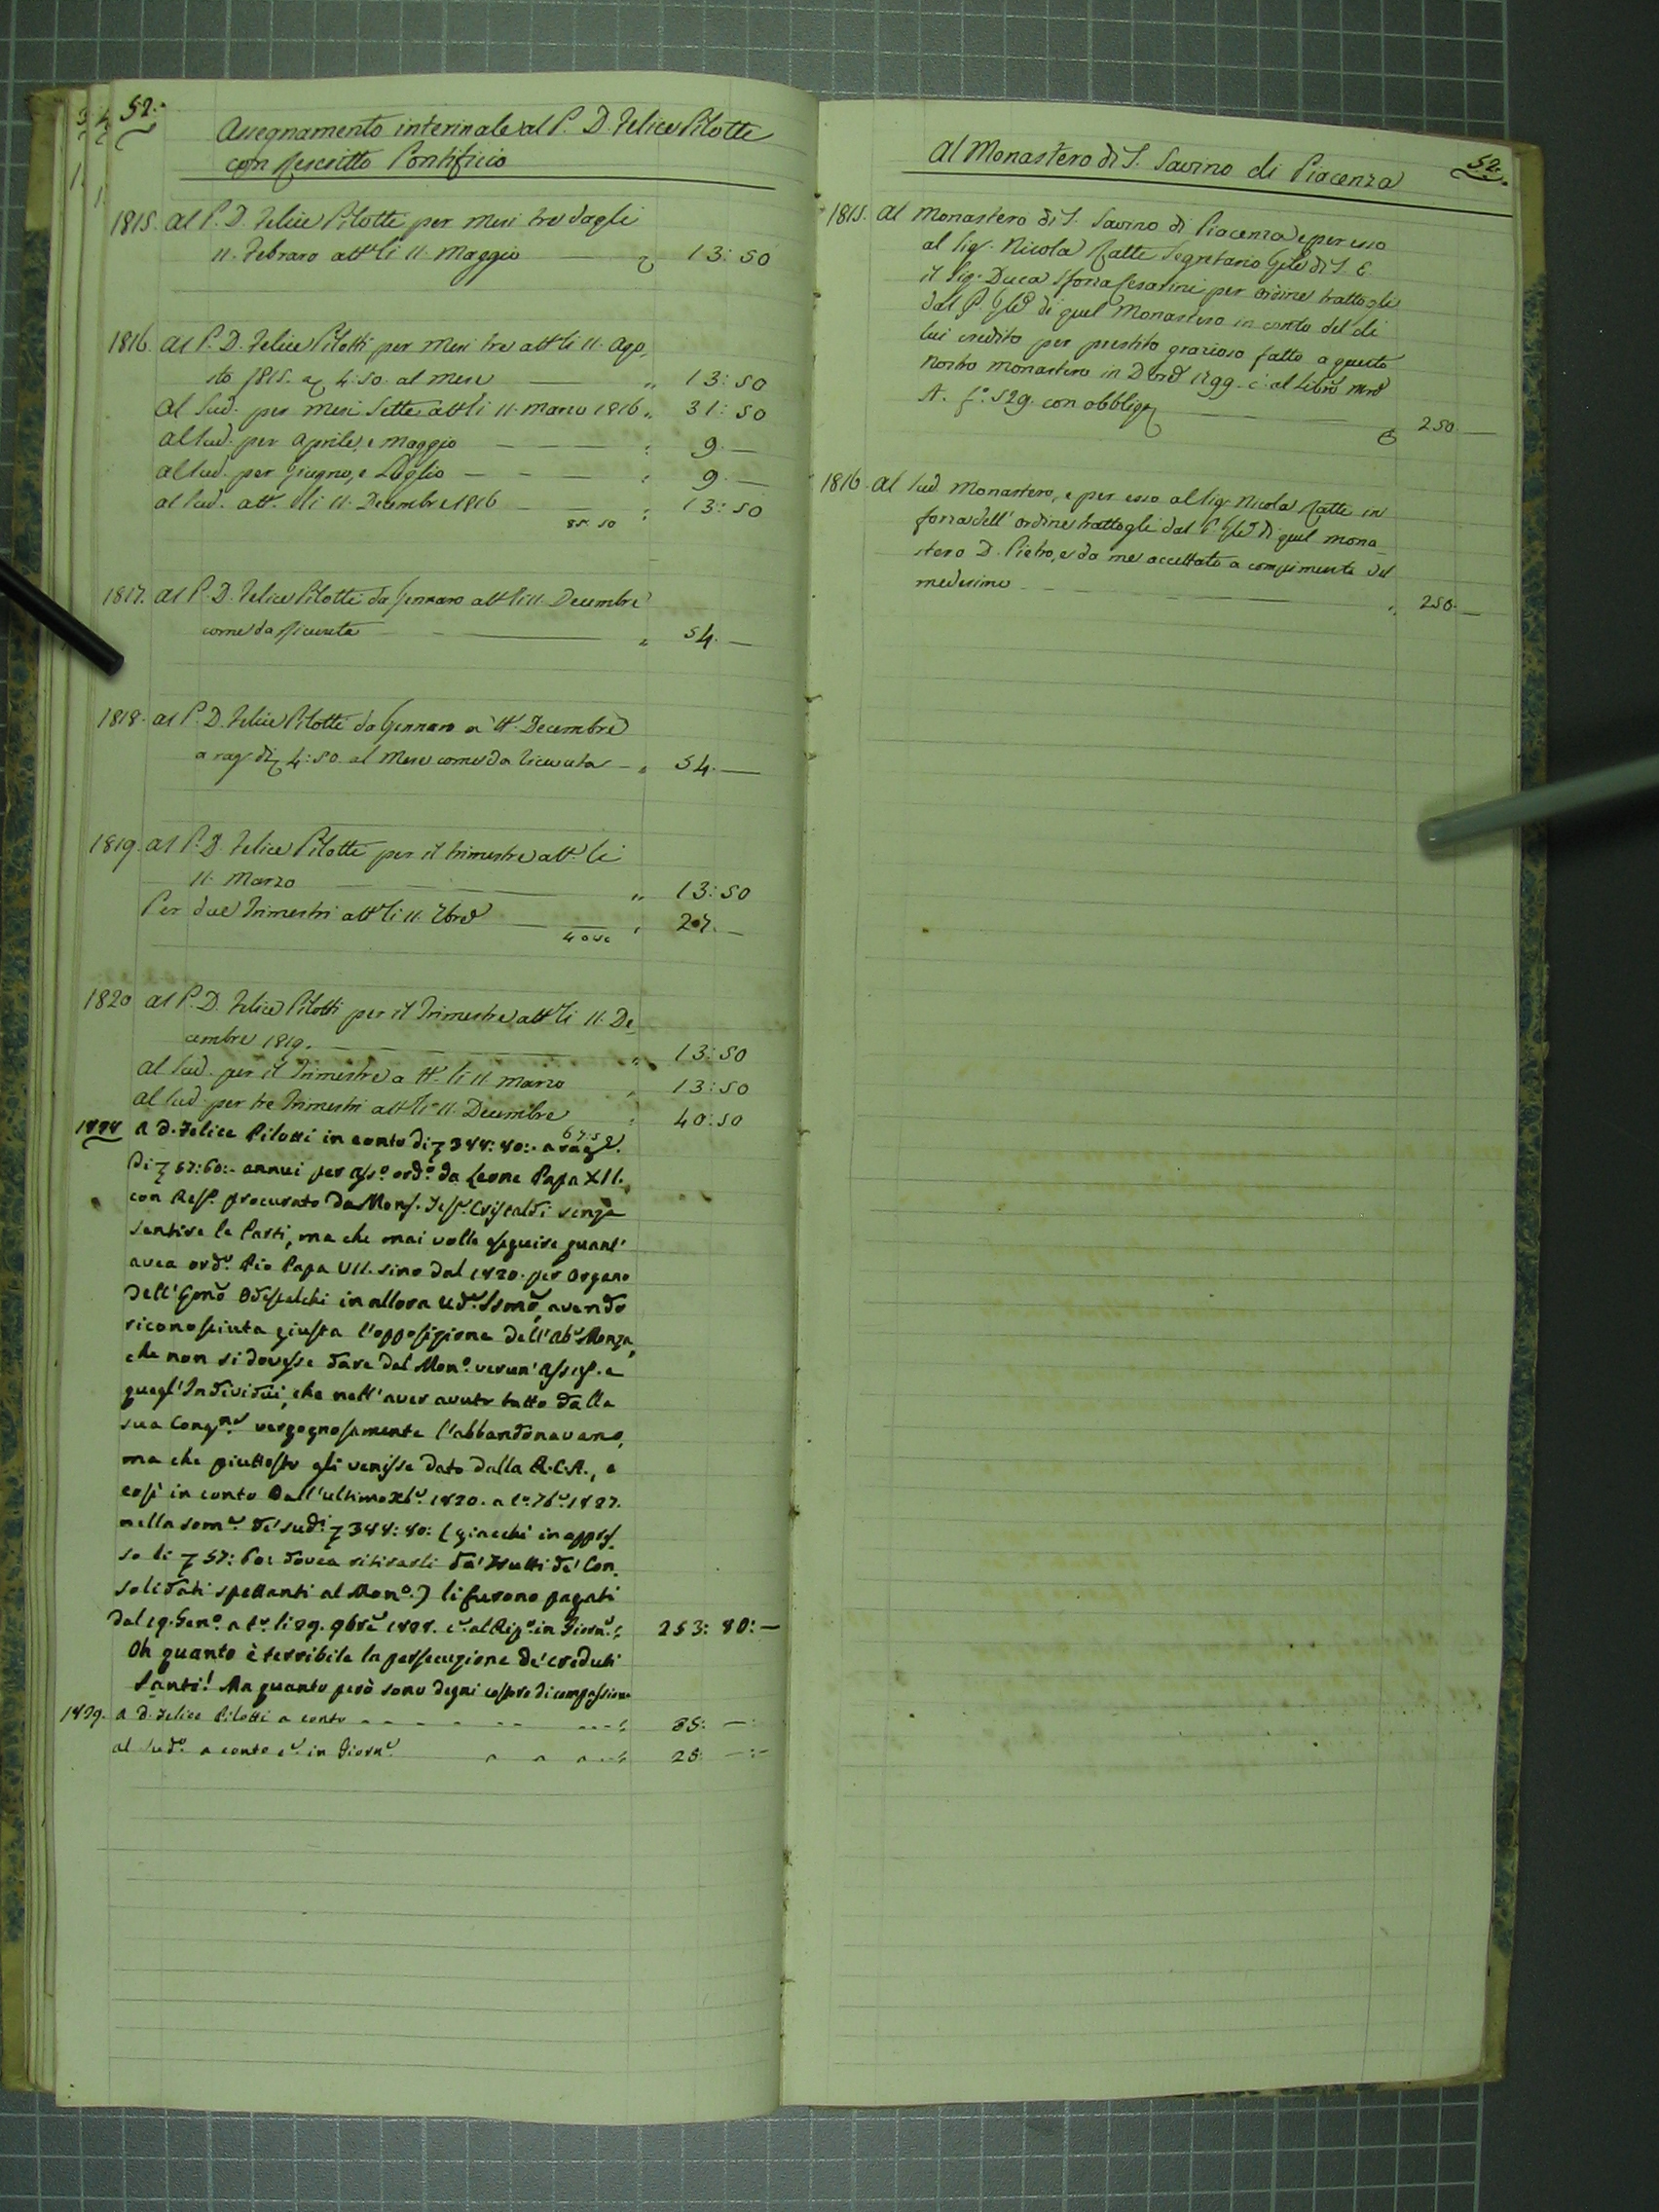 52.
Assegnamento interinale al P. D. Felice Pilotti
con Rescritto Pontificio
1815. Al P. D. Felice Pilotti per mesi tre dagli
11. Febraro att. li 11. Maggio 13:50
1816. Al P. D. Felice Pilotti per mesi tre att. li 11. Ago,
sto 1815. a 4:50. al mese 13:50
Al Sud. per mesi sette att. li 11. Marzo 1816 31:50
Al Sud. per Aprile, e Maggio 9.—
Al Sud. per Giugno, e Luglio 9.—
Al Sud. att. li 11. Decembre 1816 13:50
1817. Al P. D. Felice Pilotti da Gennaro att. li 11. Decembre
come da ricevuta 54.—
1818. Al P. D. Felice Pilotti da Gennaro a tt. Decembre
a rag. di 4:50. al Mese come da ricevuta 54.—
1819. Al P. D. Felice Pilotti per il trimestre att. li
11. Marzo 13:50
Per due Trimestri att. li 11. 7bre 27.—
1820 Al P. D. Felice Pilotti per il Trimestre att. li 11. De,
cembre 1819. 13:50
Al Sud. per il Trimestre a tt. li 11 marzo 13:50
Al Sud. per tre Trimestri att. li 11. Decembre 40:50
67:50
A D. Felice Pilotti in conto di 344:40:
Di 57:60:- annui per ord.o da Leone Papa XII.
con Resc. procurato da Mons. Cristaldi senza
sentire le Parti, ma che mai volle eseguire quant'
avea ord.o Pio Papa VII. sino dal 1820. per organo
dell' Odescalchi in allora
riconosciuta giusta l'opposizione dell' Ab.e Monza,
che non si dovesse dare dal Mon.o verun' asseg. a
quegl' Individui, che nell' aver avuto tutto dalla
sua Cong.ne vergognosamente l'abbandonavano,
ma che piuttosto gli venisse dato dalla R.C.A., e
così in conto dall' ultimo Xb.e 1820. a t.o 7b.e 1827.
nella som.a de' sud.i 344:40: (giacchè in appres,
so li 57:60: dovea ritirarli da' Frutti de' Con,
solidati spettanti al Mon.o) li furono pagati
dal 19. Gen.o a t.o li 29. 9bre 253: 80:—
Oh quanto è terribile la persecuzione de' creduti
Santi! Ma quanto però sono degni costoro di compassione
1829. A D. Felice Pilotti a conto 35: —:
al Sud.o a conto c.e in Giorn.e 25: —:—
52.
Al Monastero di S. Savino di Piacenza
1815. Al Monastero di S. Savino di Piacenza e per esso
al Sig. Nicola Ratti Segretario Gñle di S. E.
il Sig. Duca Sforza Cesarini per ordine trattogli
dal P. di quel Monastero in conto del di
lui credito per prestito grazioso fatto a questo
nostro monastero in al Libro
A. f.o 529. con obbligo 250.—
1816. Al Sud. Monastero, e per esso al Sig. Nicola Ratti in
forza dell' ordine trattogli dal P. di quel Mona,
stero D. Pietro, e da me accettato a compimento del
medesimo 250.—